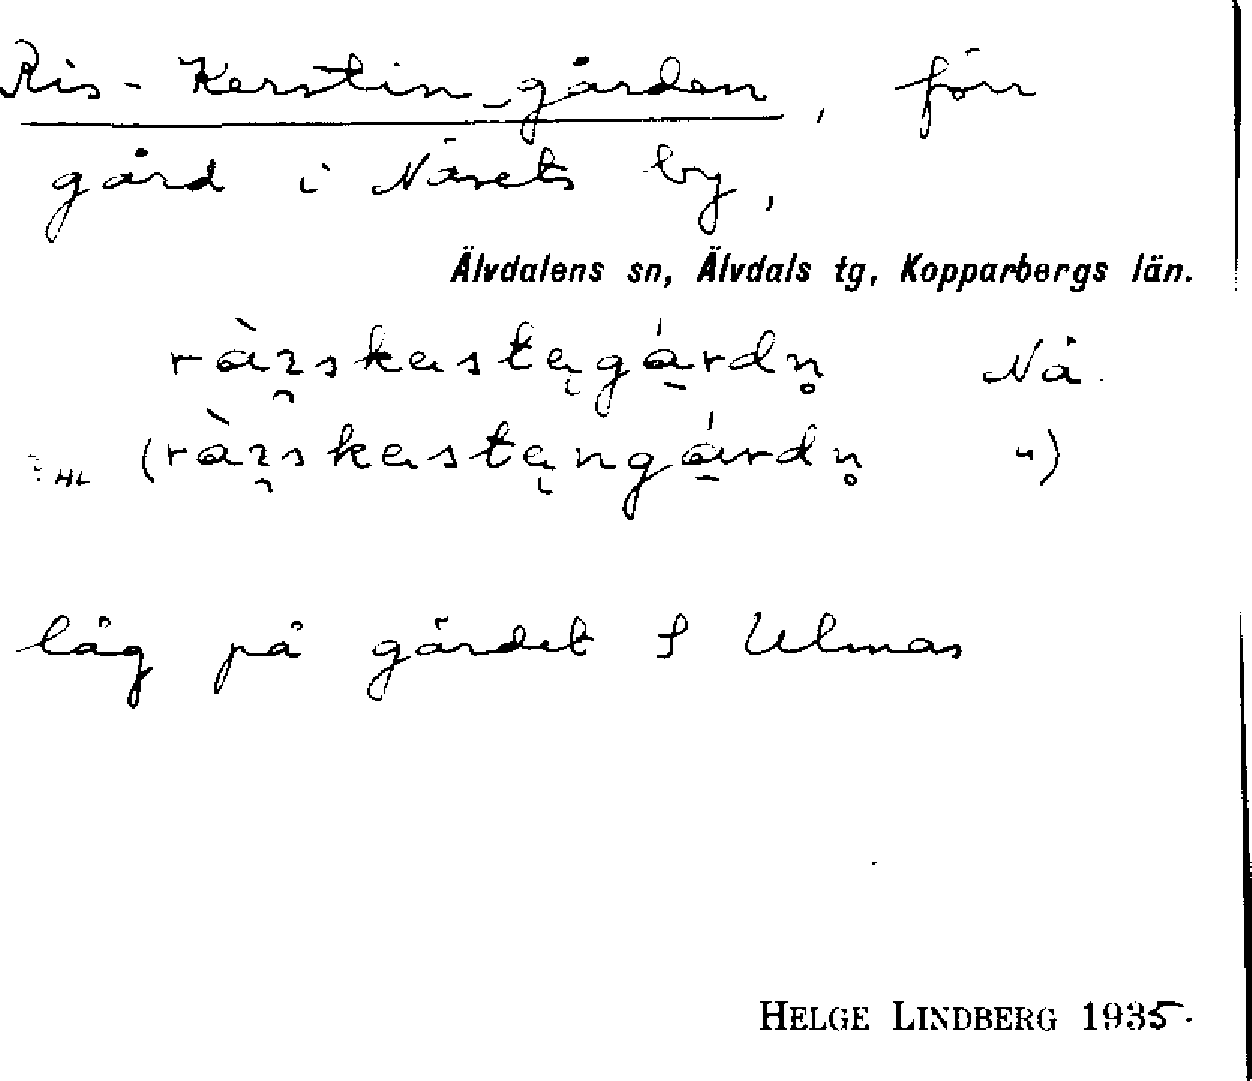 Ris-Kerstin-gården, förr
gård i Näsets by,
Älvdalens sn, Älvdals tg, Kopparbergs län.
Nä.
HL
låg på gärdet S Ulmas
HELGE LINDBERG 1935.